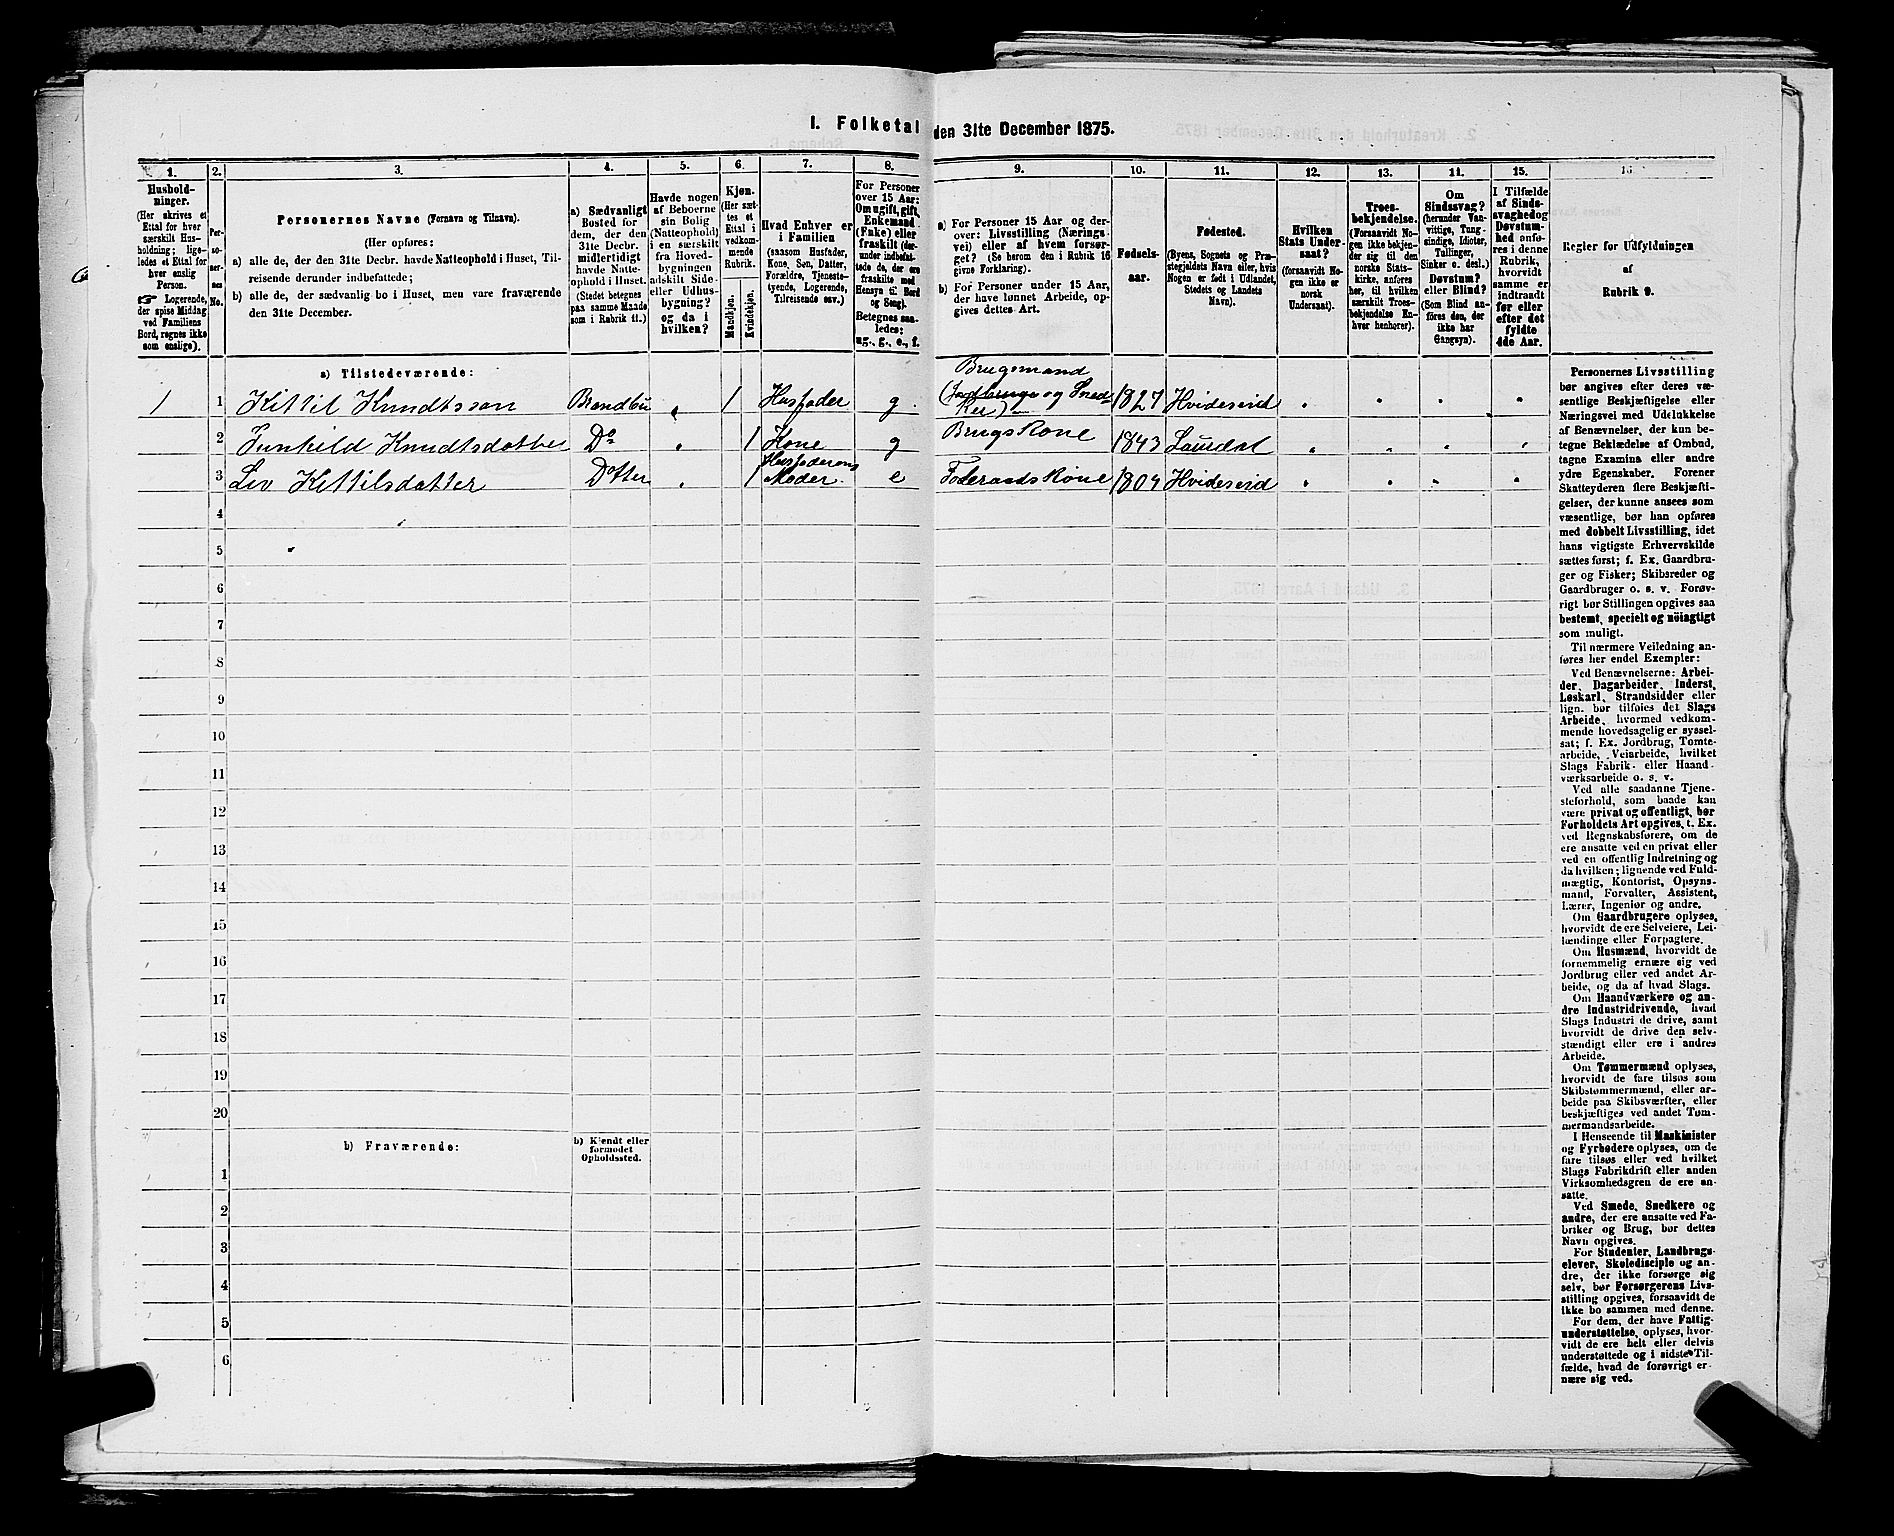 I. Folketal den 31te December 1875.
1.
2.
3.
4.
5.
6.
7.
8.
9.
10.
11.
12.
13.
14.
15.
16
Hushold-
ninger.
(Her skrives et
Ettal for hver
særskilt Hus-
holdning; lige-
ledes et Ettal for
hver enslig
Person.
☞ Logerende,
der spise Middag
ved Familiens
Bord, regnes ikke
som enslige).
Per-
so-
ner-
nes
No.
Personernes Navne (Fornavn og Tilnavn).
(Her opføres:
a) alle de, der den 31te Decbr. havde Natteophold i Huset, Til-
reisende derunder indbefattede;
b) alle de, der sædvanlig bo i Huset, men vare fraværende
den 31te December.
a) Sædvanligt
Bosted for
dem, der den
31te Decbr.
midlertidigt
havde Natte-
ophold i Huset.
(Stedet betegnes
paa samme Maade
som i Rubrik 11.)
Havde nogen
af Beboerne
sin Bolig
(Natteophold)
i en særskilt
fra Hoved-
bygningen
adskilt Side-
eller Udhus-
bygning?
og da i
hvilken?
Kjøn.
(Her sæt-
tes et
Ettal i
vedkom-
mende
Rubrik.
Mandkjøn.
Kvindekjøn.
Hvad Enhver er
i Familien
(saasom Husfader,
Kone, Søn, Datter,
Forældre, Tjeneste-
tyende, Logerende,
Tilreisende osv.)
For Personer
over 15 Aar:
Om ugift, gift,
Enkemand
(Enke) eller
fraskilt (der-
under indbefat-
tede de, der ere
fraskilte med
Hensyn til Bord
og Seng).
Betegnes saa-
ledes:
ug., g., e., f.
a) For Personer 15 Aar og der-
over: Livsstilling (Nærings-
vei) eller af hvem forsør-
get? (Se herom den i Rubrik 16
givne Forklaring).
b) For Personer under 15 Aar,
der have lønnet Arbeide, op-
gives dettes Art.
Fødsels-
aar.
Fødested.
(Byens, Sognets og Præ-
stegjeldets Navn eller, hvis
Nogen er født i Udlandet,
Stedets og Landets
Navn).
Hvilken
Stats Under-
saat?
(forsaavidt No-
gen ikke er
norsk
Undersaat).
Troes-
bekjendelse.
(Forsaavidt No-
gen ikke bekjen-
der sig til den
norske Stats-
kirke, anføres
her, til hvilken
særskilt Troes-
bekjendelse En-
hver henhører).
Om
Sindssvag?
(herunder Van-
vittige, Tung-
sindige, Idioter,
Tullinger,
Sinker o. desl.)
Døvstum?
eller Blind?
(Som Blind an-
føres den, der
ikke har
Gangsyn).
I Tilfælde
af Sinds-
svaghed og
Døvstum-
hed anføres
i denne
Rubrik,
hvorvidt
samme er
indtraadt
før eller
efter det
fyldte
4de Aar.
Regler for Udfyldningen
af
Rubrik 9.
a) Tilstedeværende:
1 1 Kittil Knudtssøn Brandbu „ 1 Husfader g Brugsmand (Jordbruger og Sned- ker) 1827 Hvideseid
2 Gunhild Knudtsdatter Do „ 1 Kone g BrugsKone 1843 Laurdal
3 Liv Kittilsdatter „ 1 Husfaderens Moder e FøderaadsKone 1809 Hvideseid
4
5
6
7
8
9
10
11
12
13
14
15
16
17
18
19
20
b) Fraværende:
b) Kjendt eller
formodet
Opholdssted.
1
2
3
4
5
6
Personernes Livsstilling
bør angives efter deres væ-
sentlige Beskjæftigelse eller
Næringsvei med Udelukkelse
af Benævnelser, der kun be-
tegne Beklædelse af Ombud,
tagne Examina eller andre
ydre Egenskaber. Forener
Skatteyderen flere Beskjæfti-
gelser, der kunne ansees som
væsentlige, bør han opføres
med dobbelt Livsstilling, idet
hans vigtigste Erhvervskilde
sættes først; f. Ex. Gaardbru-
ger og Fisker; Skibsreder og
Gaardbruger o. s. v. Forøv-
rigt bør Stillingen opgives saa
bestemt, specielt og nöiagtigt
som muligt.
Til nærmere Veiledning an-
føres her endel Exempler:
Ved Benævnelserne: Arbei-
der, Dagarbeider, Inderst,
Løskarl, Strandsidder eller
lign. bør tilføies det Slags
Arbeide, hvormed vedkom-
mende hovedsagelig er syssel-
sat; f. Ex. Jordbrug, Tomte-
arbeide, Veiarbeide, hvilket
Slags Fabrik- eller Haand-
værksarbeide o. s. v.
Ved alle saadanne Tjene-
steforhold, som baade kan
være privat og offentligt, bør
Forholdets Art opgives, t. Ex.
ved Regnskabsførere, om de
ere ansatte ved en privat eller
ved en offentlig Indretning og
da hvilken; lignende ved Fuld-
mægtig, Kontorist, Opsyns-
mand, Forvalter, Assistent,
Lærer, Ingeniør og andre.
Om Gaardbrugere oplyses,
hvorvidt de ere Selveiere, Lei-
lændinge eller Forpagtere.
Om Husmænd, hvorvidt de
fornemmelig ernære sig ved
Jordbrug eller ved andet Ar-
beide, og da af hvad Slags.
Om Haandværkere og an-
dre Industridrivende, hvad
Slags Industri de drive, samt
hvorvidt de drive den selv-
stændigt eller ere i andres
Arbeide.
Om Tømmermænd oplyses,
hvorvidt de fare tilsøs som
Skibstømmermænd, eller ar-
beide paa Skibsværfter, eller
beskjæftiges ved andet Tøm-
mermandsarbeide.
I Henseende til Maskinister
og Fyrbødere oplyses, om de
fare tilsøs eller ved hvilket
Slags Fabrikdrift eller anden
Virksomhedsgren de ere an-
satte.
Ved Smede, Snedkere og
andre, der ere ansatte ved Fa-
briker og Brug, bør dettes
Navn opgives.
For Studenter, Landbrugs-
elever, Skoledisciple og an-
dre, der ikke forsørge sig
selv, bør Forsørgerens Livs-
stilling opgives, forsaavidt de
ikke bo sammen med denne.
For dem, der have Fattig-
understøttelse, oplyses, hvor-
vidt de ere helt eller delvis
understøttede og i sidste Til-
fælde, hvad de forøvrigt er-
nære sig ved.